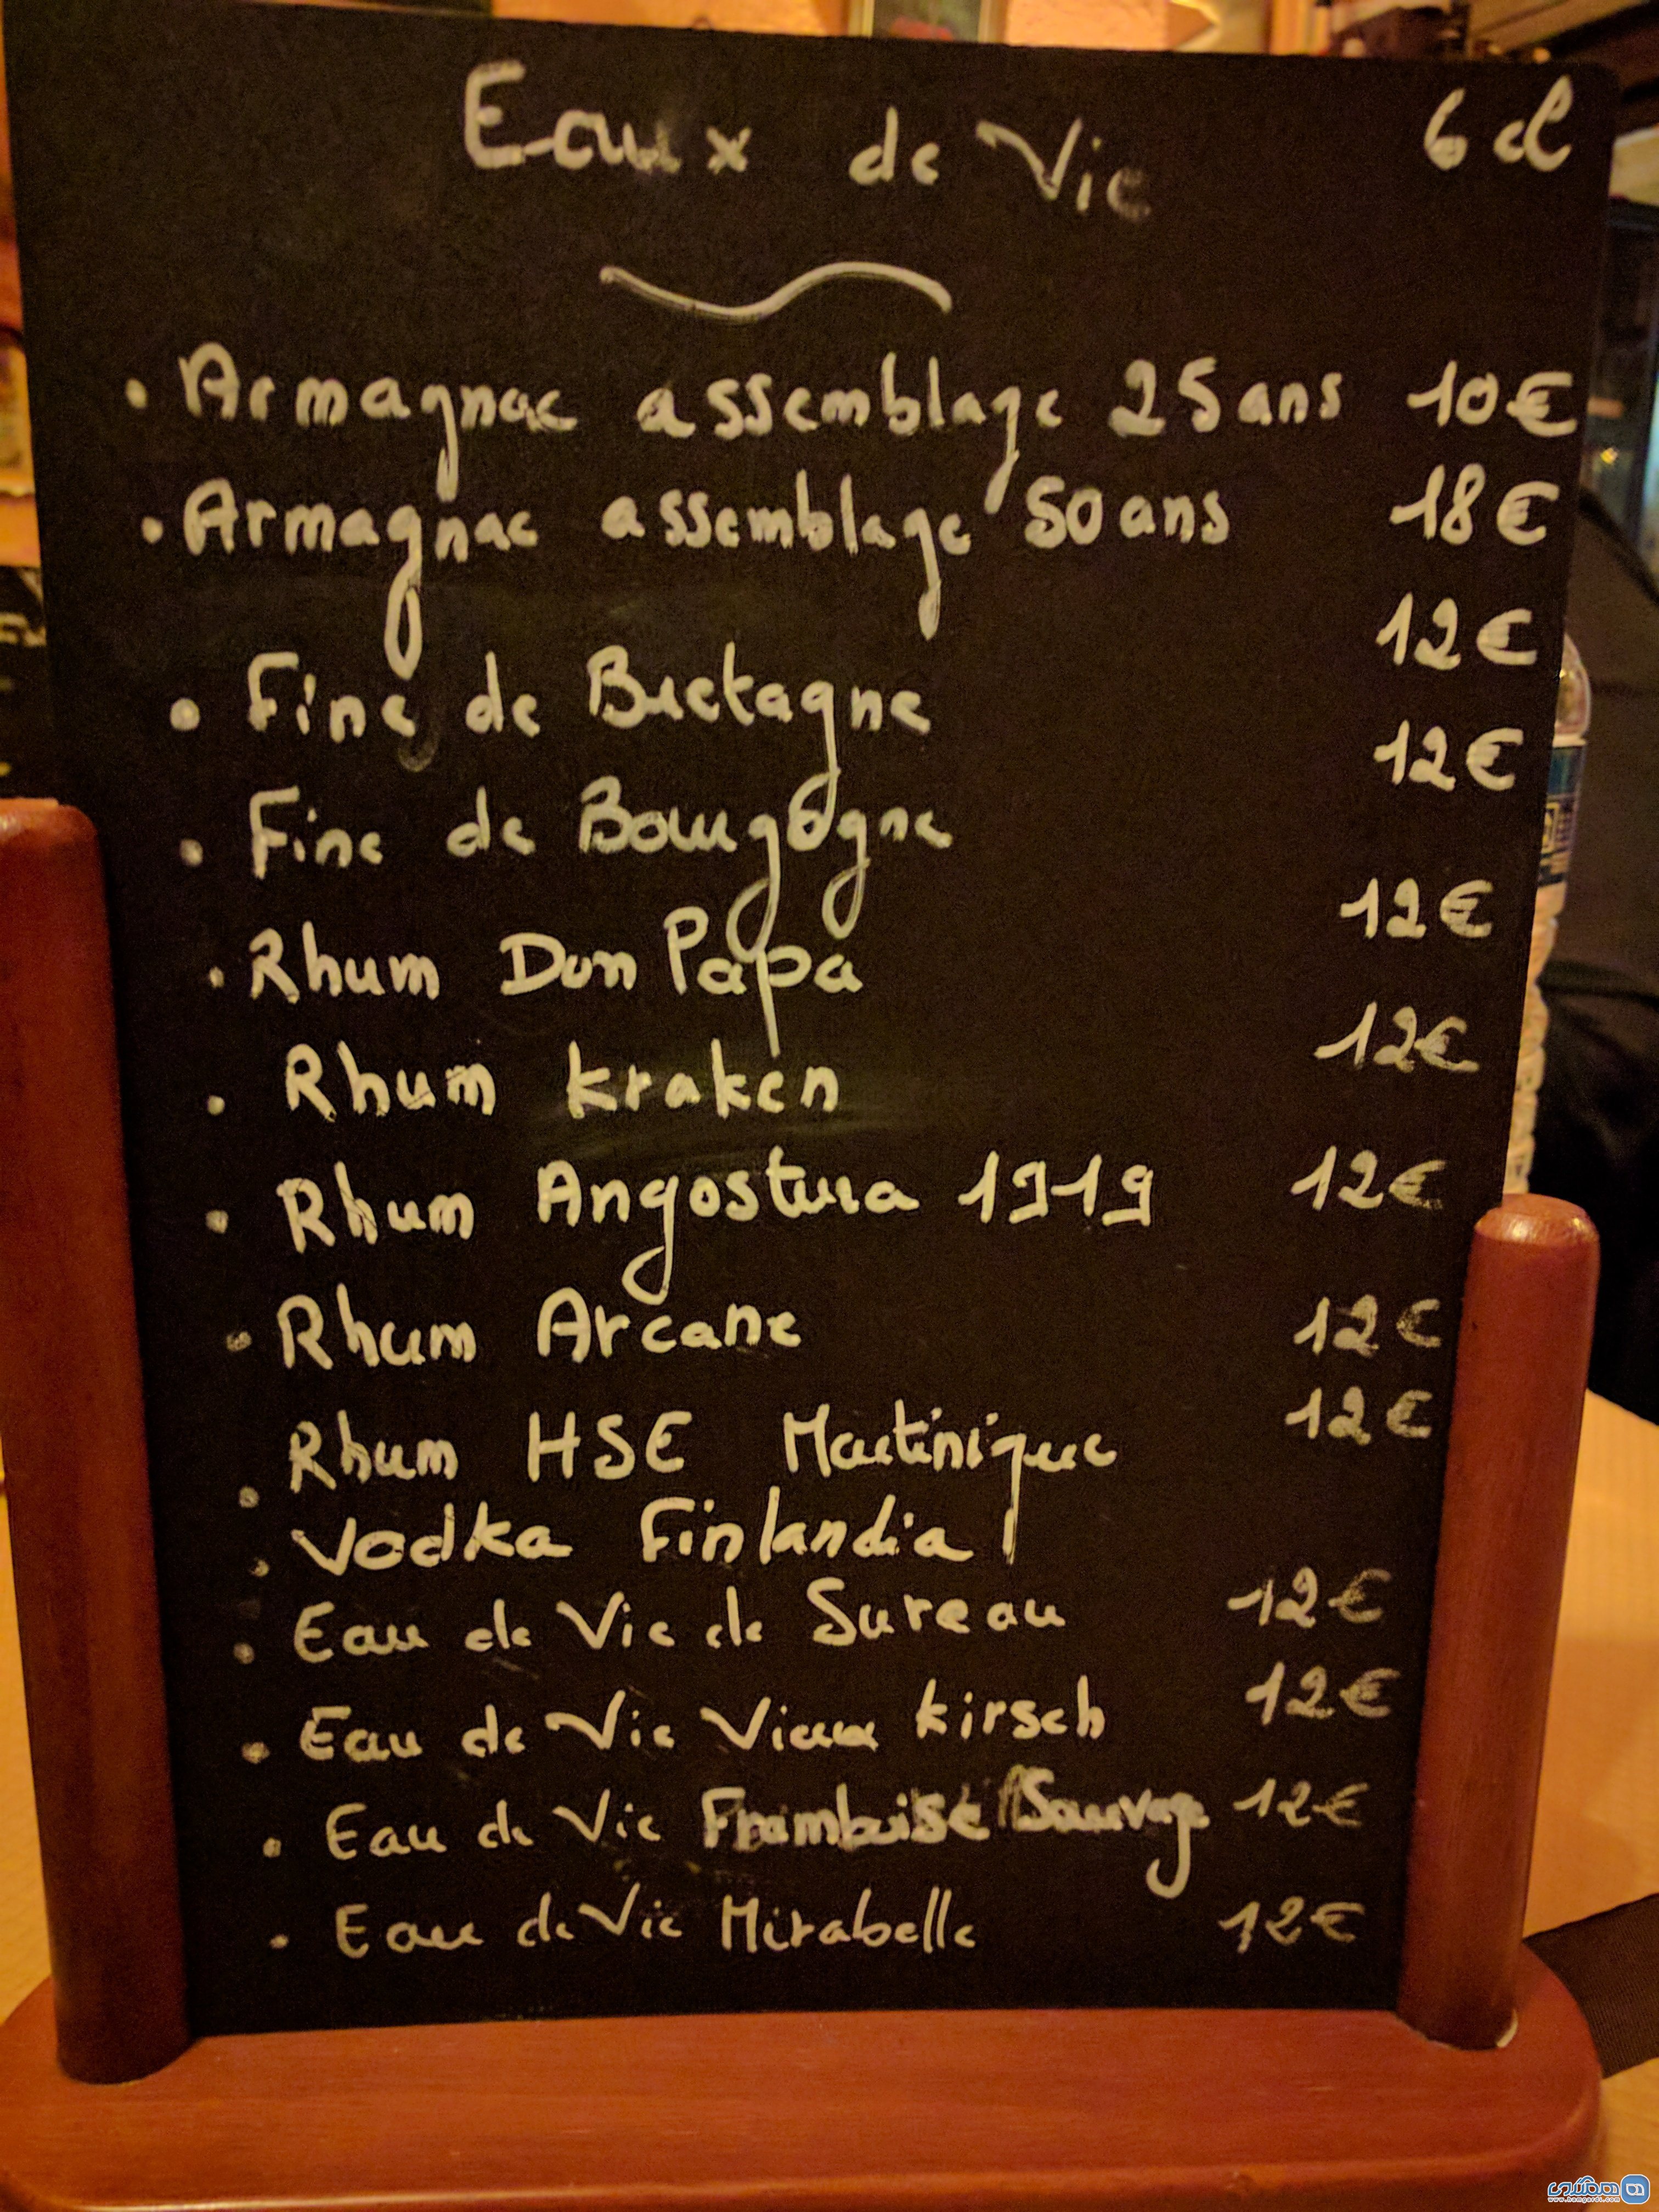 Eaux de Vie 6 cl
• Armagnac assemblage 25 ans 10€
• Armagnac assemblage 50 ans 18€
• Fine de Bretagne 12€
• Fine de Bourgogne 12€
• Rhum Don Papa 12€
• Rhum Kraken 12€
• Rhum Angostura 1919 12€
• Rhum Arcane 12€
• Rhum HSE Martinique 12€
• Vodka Finlandia
• Eau de Vie de Sureau 12€
• Eau de Vie Vieux Kirsch 12€
• Eau de Vie Framboise Sauvage 12€
• Eau de Vie Mirabelle 12€
همگردی
www.hamgardi.com